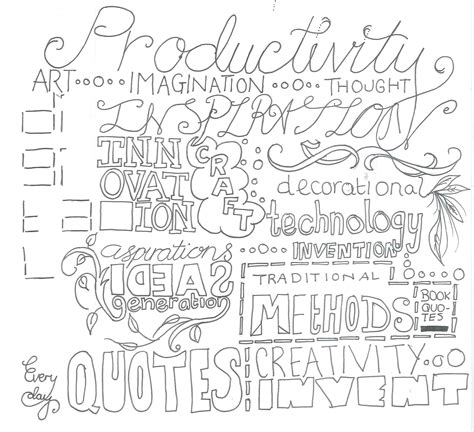 Productivity
ART IMAGINATION THOUGHT
digital
INSPIRATION
INN
OVAT
ION
CRAFT
decorational
technology
INVENTION
aspirations
IDEAS
generation
TRADITIONAL
METHODS
BOOK
QUO
TES
Every
day
QUOTES
CREATIVITY
INVENT